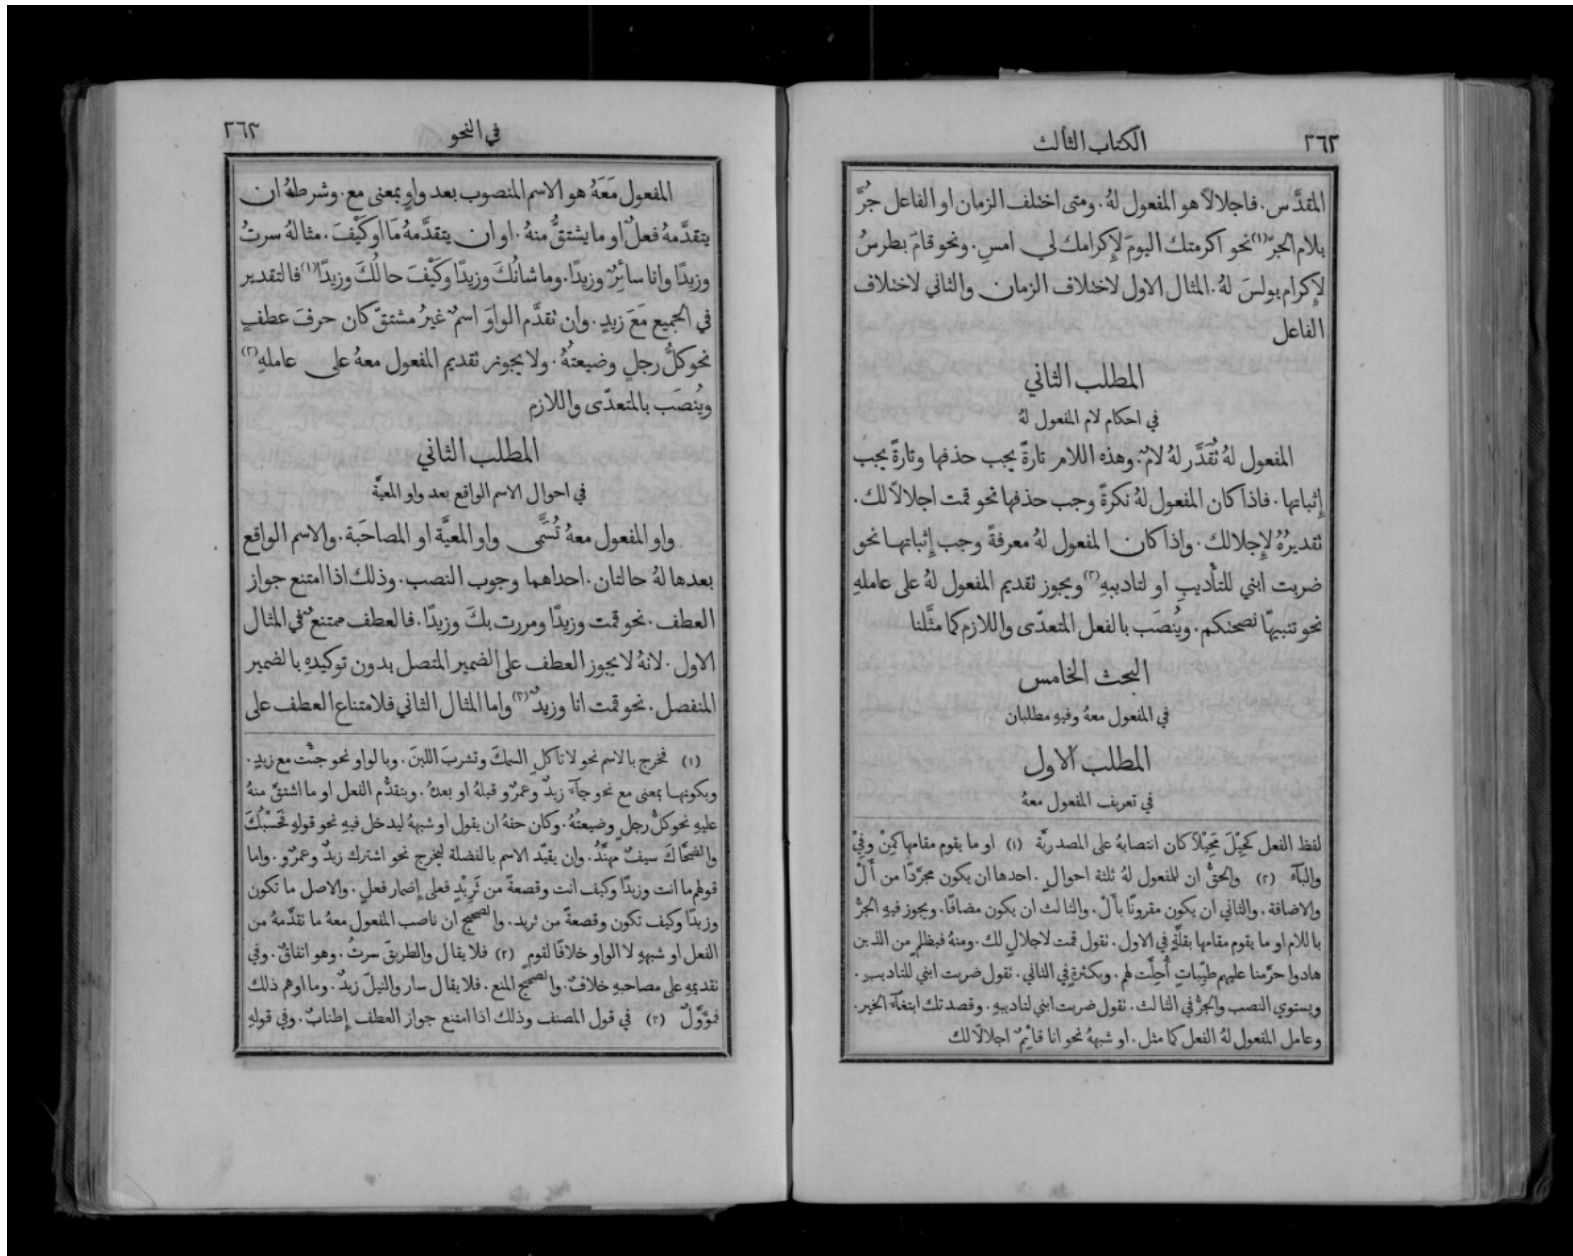 ٢٦٢
الكتاب الثالث
المقدَّس. فاجلالاً هو المفعول لهُ. ومتى اختلف الزمان او الفاعل جُرَّ
بلام الجرّ (١) نحو اكرمتك اليومَ لإكرامك لي امسِ. ونحو قامَ بطرسُ
لإكرام بولسَ لهُ. المثال الاول لاختلاف الزمان والثاني لاختلاف
الفاعل
المطلب الثاني
في احكام لام المفعول لهُ
المفعول لهُ تُقَدَّر لهُ لامٌ. وهذه اللام تارةً يجب حذفها وتارةً يجب
إثباتها. فاذا كان المفعول لهُ نكرةً وجب حذفها نحو قمت اجلالاً لك.
تقديرُهُ لإجلالك. واذا كان المفعول لهُ معرفةً وجب إثباتها نحو
ضربت ابني للتأديبِ او لتاديبهِ (٢) ويجوز تقديم المفعول لهُ على عاملهِ
نحو تنبيهًا نصحتكم. ويُنصَب بالفعل المتعدّى واللازم كما مثَّلنا
البحث الخامس
في المفعول معهُ وفيهِ مطلبان
المطلب الاول
في تعريف المفعول معهُ
لفظ الفعل كَحِيْلَ مَحِيْلاً كان انتصابهُ على المصدريَّة (١) او ما يقوم مقامها كمِنْ وفِيْ
والبآء (٢) والحقُّ ان للمفعول لهُ ثلثة احوالٍ. احدها ان يكون مجرَّدًا من أَلْ
والاضافة. والثاني ان يكون مقرونًا بأَلْ. والثالث ان يكون مضافًا. ويجوز فيهِ الجرُّ
باللام او ما يقوم مقامها بقلَّةٍ في الاول. تقول قمت لاجلالٍ لك. ومنهُ فبظلمٍ من الذين
هادوا حرَّمنا عليهم طيّباتٍ أُحِلَّت لهم. وبكثرةٍ في الثاني. تقول ضربت ابني للتاديبِ.
ويستوي النصب والجرُّ في الثالث. تقول ضربت ابني لتاديبهِ. وقصدتك ابتغآءَ الخير.
وعامل المفعول لهُ الفعل كما مثل. او شبههُ نحو انا قائِمٌ اجلالاً لك
في النحو
٢٦٣
المفعول مَعَهُ هو الاسم المنصوب بعد واوٍ بمعنى مع. وشرطهُ ان
يتقدَّمهُ فعلٌ او ما يشتقُّ منهُ. او ان يتقدَّمهُ مَا او كَيْفَ. مثالهُ سرتُ
وزيدًا وانا سائِرٌ وزيدًا. وما شانُكَ وزيدًا وكَيْفَ حالُكَ وزيدًا (١) فالتقدير
في الجميع مَعَ زيدٍ. وان تقدَّم الواوَ اسمٌ غيرُ مشتقّ كان حرفَ عطفٍ
نحو كلُّ رجلٍ وضيعتُهُ. ولا يجوز تقديم المفعول معهُ على عاملهِ (٢)
ويُنصَب بالمتعدّى واللازم
المطلب الثاني
في احوال الاسم الواقع بعد واو المعيَّة
واو المفعول معهُ تُسَمَّى واو المعيَّة او المصاحَبة. والاسم الواقع
بعدها لهُ حالتان. احداهما وجوب النصب. وذلك اذا امتنع جواز
العطف. نحو قمت وزيدًا ومررت بكَ وزيدًا. فالعطف ممتنعٌ في المثال
الاول. لانهُ لا يجوز العطف على الضمير المتصل بدون توكيدهِ بالضمير
المنفصل. نحو قمت انا وزيدٌ (٣) واما المثال الثاني فلامتناع العطف على
(١) فخرج بالاسم نحو لا تأكلِ السمكَ وتشربَ اللبنَ. وبالواو نحو جئْت مع زيدٍ.
وبكونها بمعنى مع نحو جآءَ زيدٌ وعمرٌو قبلهُ او بعدهُ. وبتقدُّم الفعل او ما اشتقَّ منهُ
عليهِ نحو كلُّ رجلٍ وضيعتُهُ. وكان حقهُ ان يقول او شبههُ ليدخل فيهِ نحو قولهِ فَحَسْبُكَ
والضحَّاكَ سيفٌ مهنَّدُ. وان يقيّد الاسم بالفضلة ليخرج نحو اشترك زيدٌ وعمرٌو. واما
قولهم ما انت وزيدًا وكيف انت وقصعةً من ثريدٍ فعلى إضمار فعلٍ. والاصل ما تكون
وزيدًا وكيف تكون وقصعةً من ثريد. والصحيح ان ناصب المفعول معهُ ما تقدَّمهُ من
الفعل او شبههِ لا الواو خلافًا لقومٍ (٢) فلا يقال والطريقَ سرتُ. وهو اتفاقٌ. وفي
تقديمهِ على مصاحبهِ خلافٌ. والصحيح المنع. فلا يقال سار والنيلَ زيدٌ. وما اوهم ذلك
فمؤَوَّلٌ (٣) في قول المصنف وذلك اذا امتنع جواز العطف إطنابٌ. وفي قولهِ